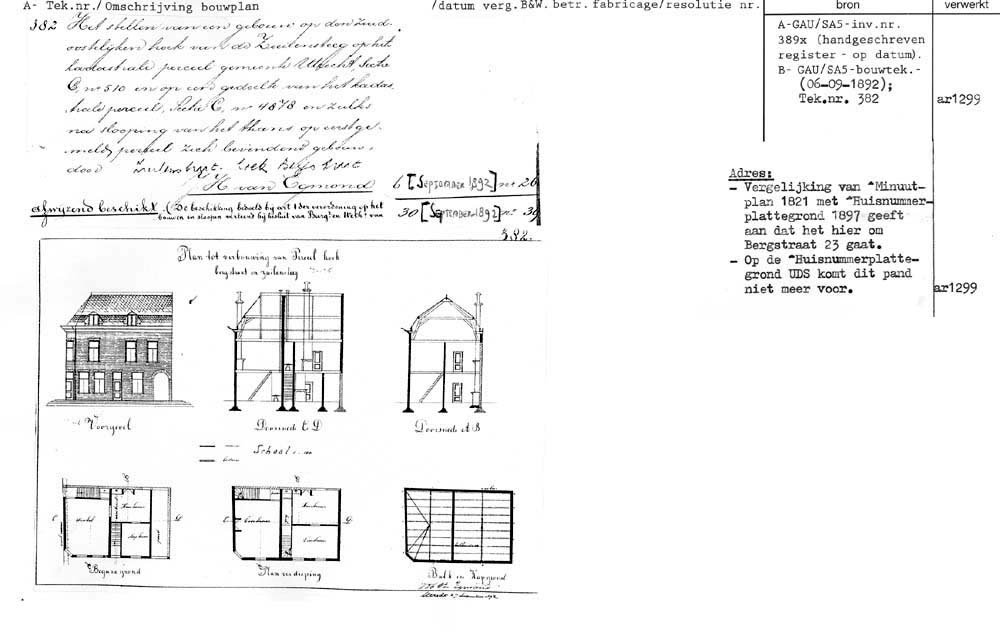 A- Tek.nr./Omschrijving bouwplan /datum verg.B&W.betr.fabricage/resolutie nr. bron verwerkt
382 Het stellen van een gebouw op den Zuid-
oostelijken hoek van de Zuilensteeg op het
kadastrale perceel gemeente Utrecht Sectie
C, nº 510 en op een gedeelte van het kadas
trale perceel, Sectie C, nº 4878 en zulks
na slooping van het thans op eerstge-
meld perceel zich bevindend gebouw,
door
H van Egmond
6 [September 1892] nº 26
afwijzend beschikt. (De beschikking bedoeld bij art 1 der verordening op het
bouwen en sloopen verleend bij besluit van Burg. en Weth. van
30 [September 1892] nº 39
382.
A-GAU/SA5-inv.nr.
389x (handgeschreven
register - op datum).
B- GAU/SA5-bouwtek.-
(06-09-1892);
Tek.nr. 382
ar1299
Adres:
- Vergelijking van "Minuut-
plan 1821 met "Huisnummer-
plattegrond 1897 geeft
aan dat het hier om
Bergstraat 23 gaat.
- Op de "Huisnummerplatte-
grond UDS komt dit pand
niet meer voor.
ar1299
Plan tot verbouwing van Perceel hoek
bergstraat en zuilensteeg
Voorgevel
Doorsnede C D
Doorsnede A B
Schaal
Winkel
C
D
Begane grond
D
Plan verdieping
Balk en Kapgrond